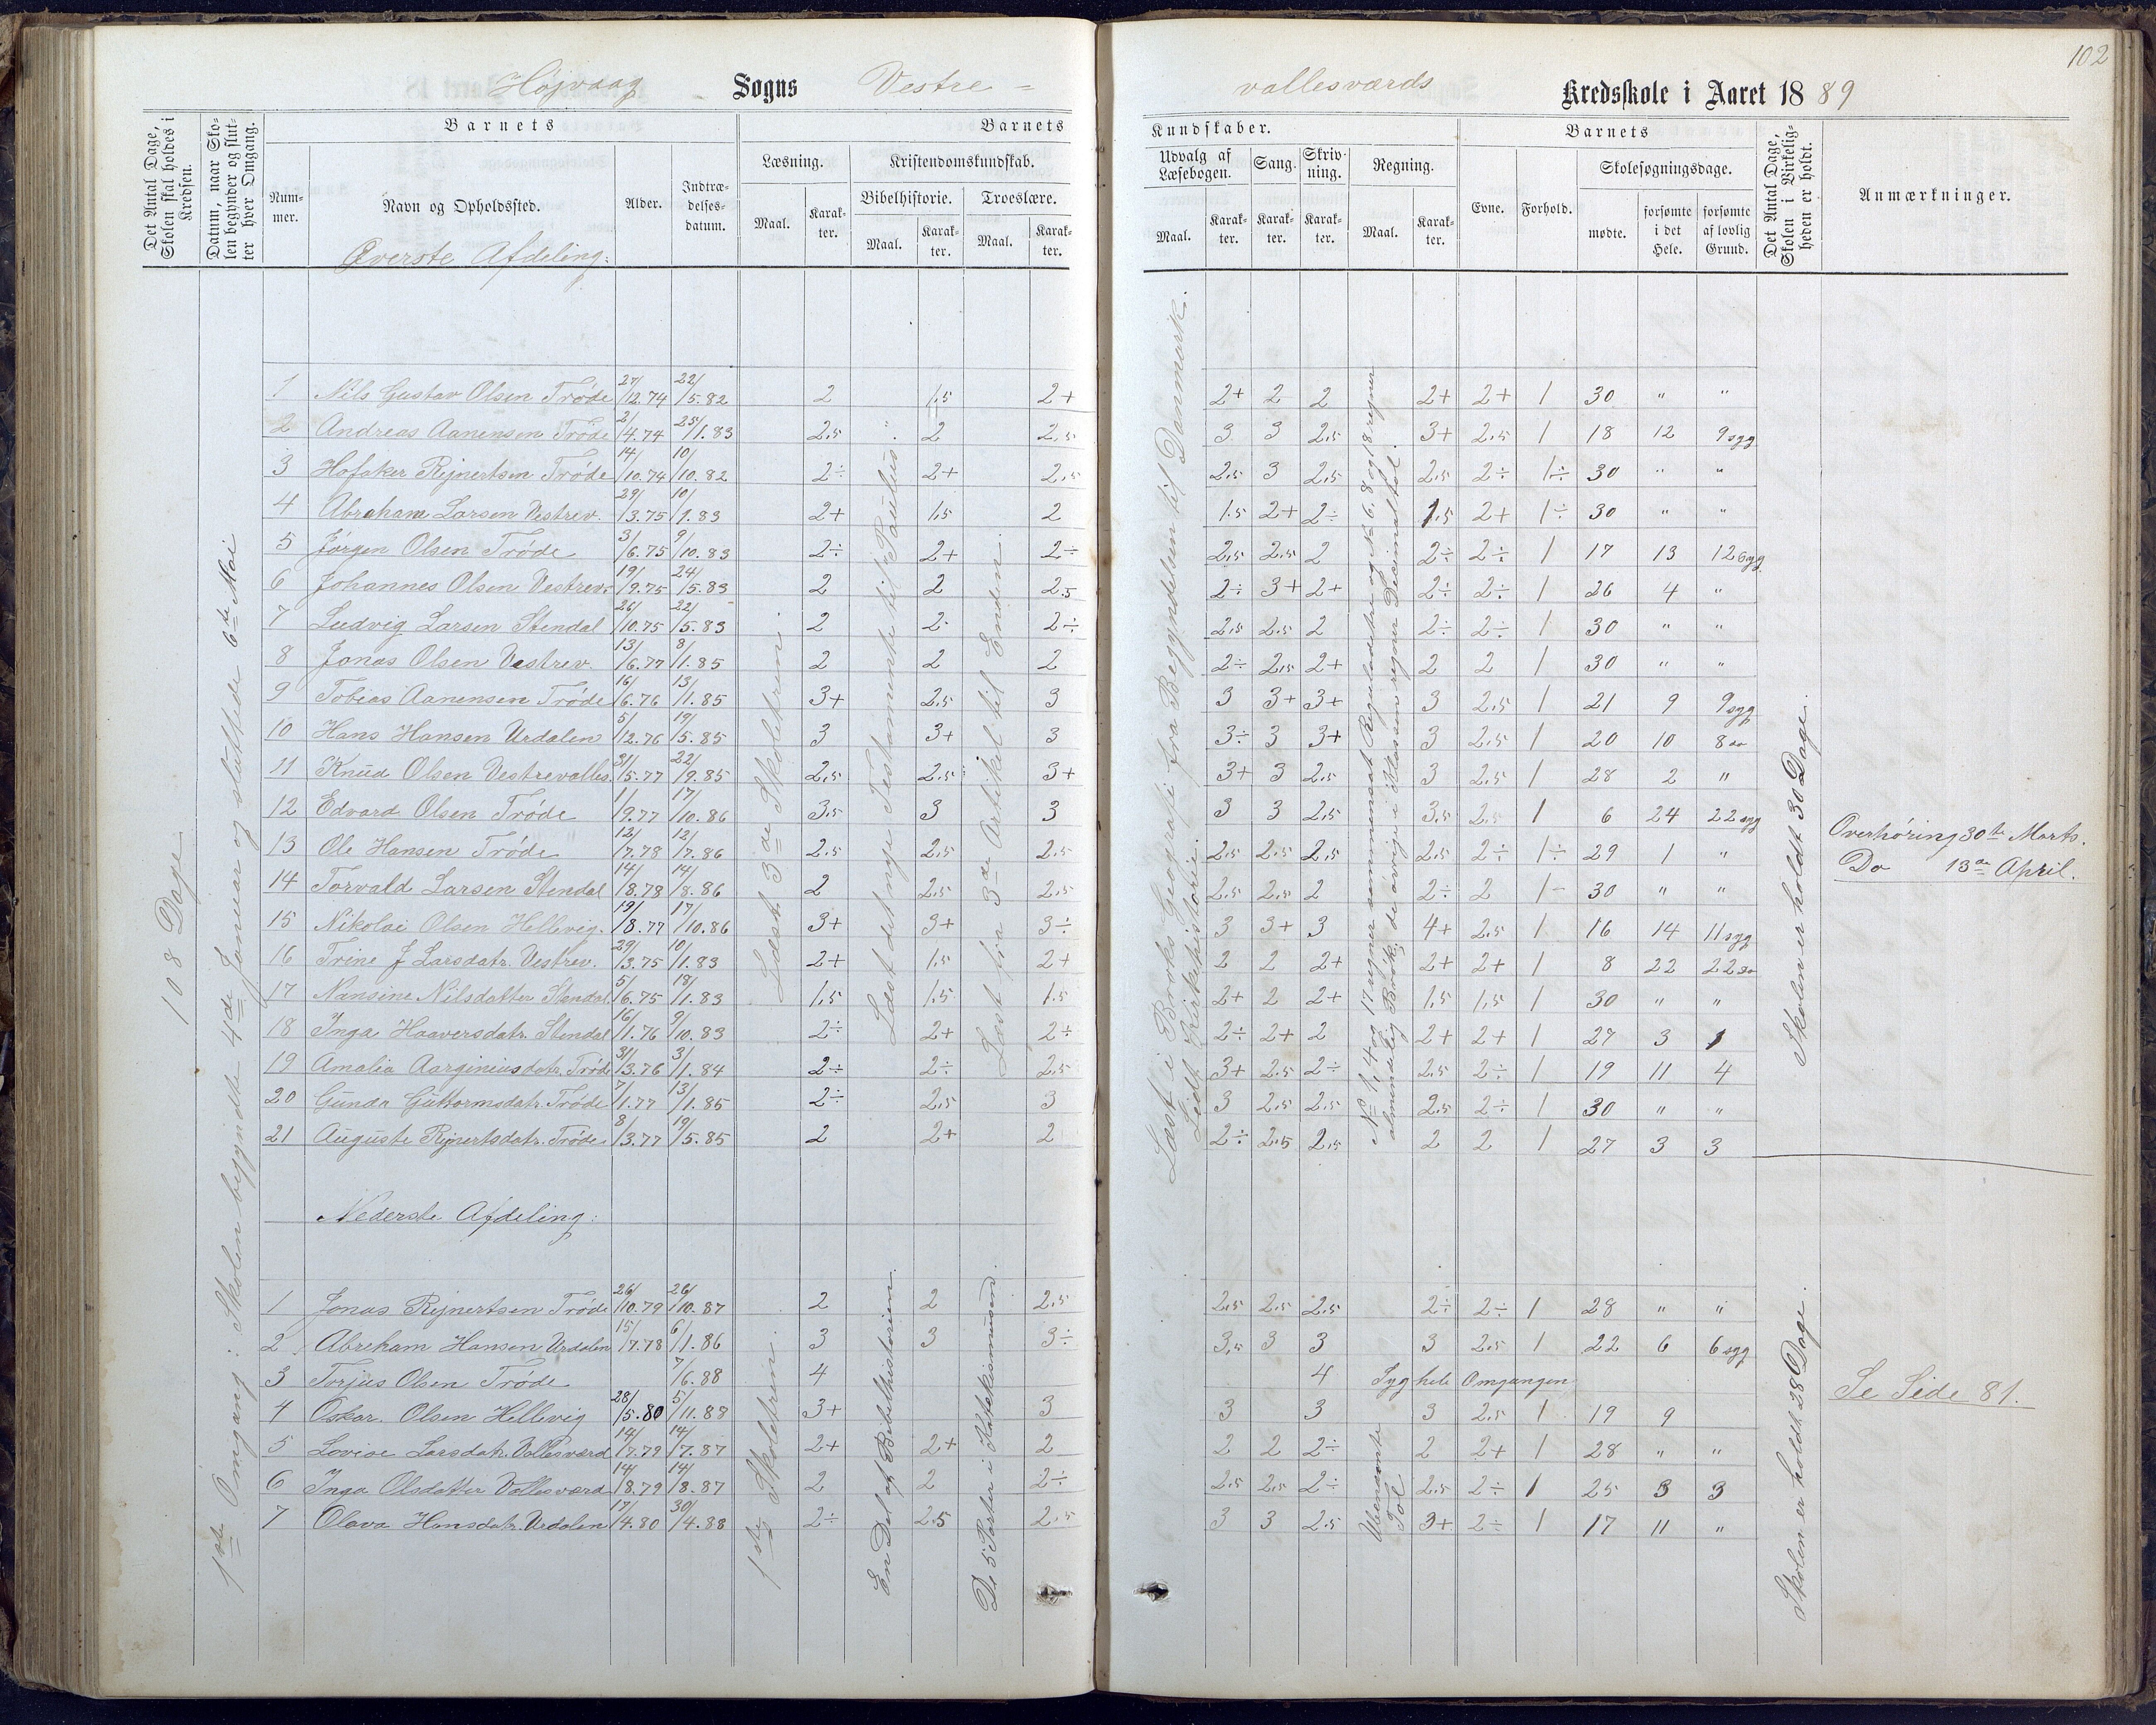 102
Højvaag Sogns Vestre =
vallesværds Kredsskole i Aaret 1889
Det Antal Dage, Skolen skal holdes i Kredsen.
Datum, naar Skolen begynder og slutter hver Omgang.
Barnets
Nummer.
Navn og Opholdssted.
Alder.
Indtrædelsesdatum.
Barnets
Læsning.
Maal.
Karakter.
Kristendomskundskab.
Bibelhistorie.
Maal.
Karakter.
Troeslære.
Maal.
Karakter.
Kundskaber.
Udvalg af Læsebogen.
Maal.
Karakter.
Sang.
Karakter.
Skrivning.
Karakter.
Regning.
Maal.
Karakter.
Barnets
Evne.
Forhold.
Skolesøgningsdage.
mødte.
forsømte i det Hele.
forsømte af lovlig Grund.
Det Antal Dage, Skolen i Virkeligheden er holdt.
Anmærkninger.
Øverste Afdeling:
108 Dage
1ste Omgang: Skolen begyndte 4de Januar og sluttede 6te Mai
Læst 3de Skoletrin.
Læst det nye Testamente til Paulus
Læst fra 3de Artikel til Enden.
Læst i Broks Geografi fra Begyndelsen til Danmark.
Lidt Kirkehistorie.
No 1, 4 og 17 regner sammensat Reguladetri og No 6, 8 og 18 regner
almindelig Brøk, de øvrige i Klassen regner Decimaltal.
Skolen er holdt 30 Dage.
1 Nils Gustav Olsen Trøde 27/12.74 22/5.82 2 1.5 2+ 2+ 2 2 2+ 2+ 1 30 " "
2 Andreas Aanensen Trøde 2/4.74 25/1.83 2.5 " 2 2.5 3 3 2.5 3+ 2.5 1 18 12 9 syg
3 Hofaker Rejnertsen Trøde 14/10.74 10/10.82 2÷ 2+ 2.5 2.5 3 2.5 2.5 2÷ 1÷ 30 " "
4 Abraham Larsen Vestrev. 29/3.75 10/1.83 2+ 1.5 2 1.5 2+ 2÷ 1.5 2+ 1÷ 30 " "
5 Jørgen Olsen Trøde 3/6.75 9/10.83 2÷ 2+ 2÷ 2.5 2.5 2 2÷ 2÷ 1 17 13 12 syg
6 Johannes Olsen Vestrev. 19/9.75 24/5.83 2 2 2.5 2÷ 3+ 2+ 2÷ 2÷ 1 26 4 "
7 Ludvig Larsen Stendal 26/10.75 22/5.83 2 2 2÷ 2.5 2.5 2 2÷ 2÷ 1 30 " "
8 Jonas Olsen Vestrev. 13/6.77 8/1.85 2 2 2 2÷ 2.5 2+ 2 2 1 30 " "
9 Tobias Aanensen Trøde 16/6.76 13/1.85 3+ 2.5 3 3 3+ 3+ 3 2.5 1 21 9 9 syg
10 Hans Hansen Urdalen 5/12.76 19/5.85 3 3+ 3 3÷ 3 3+ 3 2.5 1 20 10 8 do
11 Knud Olsen Vestrevalles. 31/5.77 22/9.85 2.5 2.5 3+ 3+ 3 2.5 3 2.5 1 28 2 "
12 Edvard Olsen Trøde 1/9.77 17/10.86 3.5 3 3 3 3 2.5 3.5 2.5 1 6 24 22 syg
13 Ole Hansen Trøde 12/7.78 12/7.86 2.5 2.5 2.5 2.5 2.5 2.5 2.5 2÷ 1÷ 29 1 " Overhøring 30te Marts.
14 Torvald Larsen Stendal 14/8.78 14/8.86 2 2.5 2.5 2.5 2.5 2 2÷ 2 1- 30 " " Do 13de April.
15 Nikolai Olsen Hellevig. 19/8.77 17/10.86 3+ 3+ 3÷ 3 3+ 3 4+ 2.5 1 16 14 11 syg
16 Trine J Larsdatr. Vestrev. 29/3.75 10/1.83 2+ 1.5 2+ 2 2 2+ 2+ 2+ 1 8 22 22 do
17 Nansine Nilsdatter Stendal. 5/6.75 18/1.83 1.5 1.5 1.5 2+ 2 2+ 1.5 1.5 1 30 " "
18 Inga Haaversdatr. Stendal 16/1.76 9/10.83 2÷ 2+ 2÷ 2÷ 2+ 2 2+ 2+ 1 27 3 1
19 Amalia Aarginiusdatr. Trøde 31/3.76 3/1.84 2÷ 2÷ 2.5 3+ 2.5 2÷ 2.5 2÷ 1 19 11 4
20 Gunda Guttormsdatr. Trøde 7/1.77 13/1.85 2÷ 2.5 3 3 2.5 2.5 2.5 2÷ 1 30 " "
21 Auguste Rejnertsdatr. Trøde 8/3.77 19/5.85 2 2+ 2 2÷ 2.5 2.5 2 2 1 27 3 3
Nederste Afdeling:
1ste Skoletrin.
En Del af Bibelhistorien.
De 5 Parter i Katekismusen.
Ubenævnte Tal
Skolen er holdt 28 Dage.
1 Jonas Rejnertsen Trøde 26/10.79 26/10.87 2 2 2.5 2.5 2.5 2.5 2÷ 2÷ 1 28 " "
2 Abraham Hansen Urdalen 15/7.78 6/1.86 3 3 3÷ 3.5 3 3 3 2.5 1 22 6 6 syg
3 Torjus Olsen Trøde 7/6.88 4 4 Syg hele Omgangen Se Side 81.
4 Oskar. Olsen Hellevig 28/5.80 5/11.88 3+ 3 3 3 3 2.5 1 19 9
5 Lovise Larsdatr. Vallesværd 14/7.79 14/7.87 2+ 2+ 2 2 2 2÷ 2 2+ 1 28 " "
6 Inga Olsdatter Vallesværd 14/8.79 14/8.87 2 2 2÷ 2.5 2.5 2÷ 2.5 2÷ 1 25 3 3
7 Olava Hansdatr. Urdalen 17/4.80 30/4.88 2÷ 2.5 2.5 3 3 2.5 3+ 2÷ 1 17 11 "